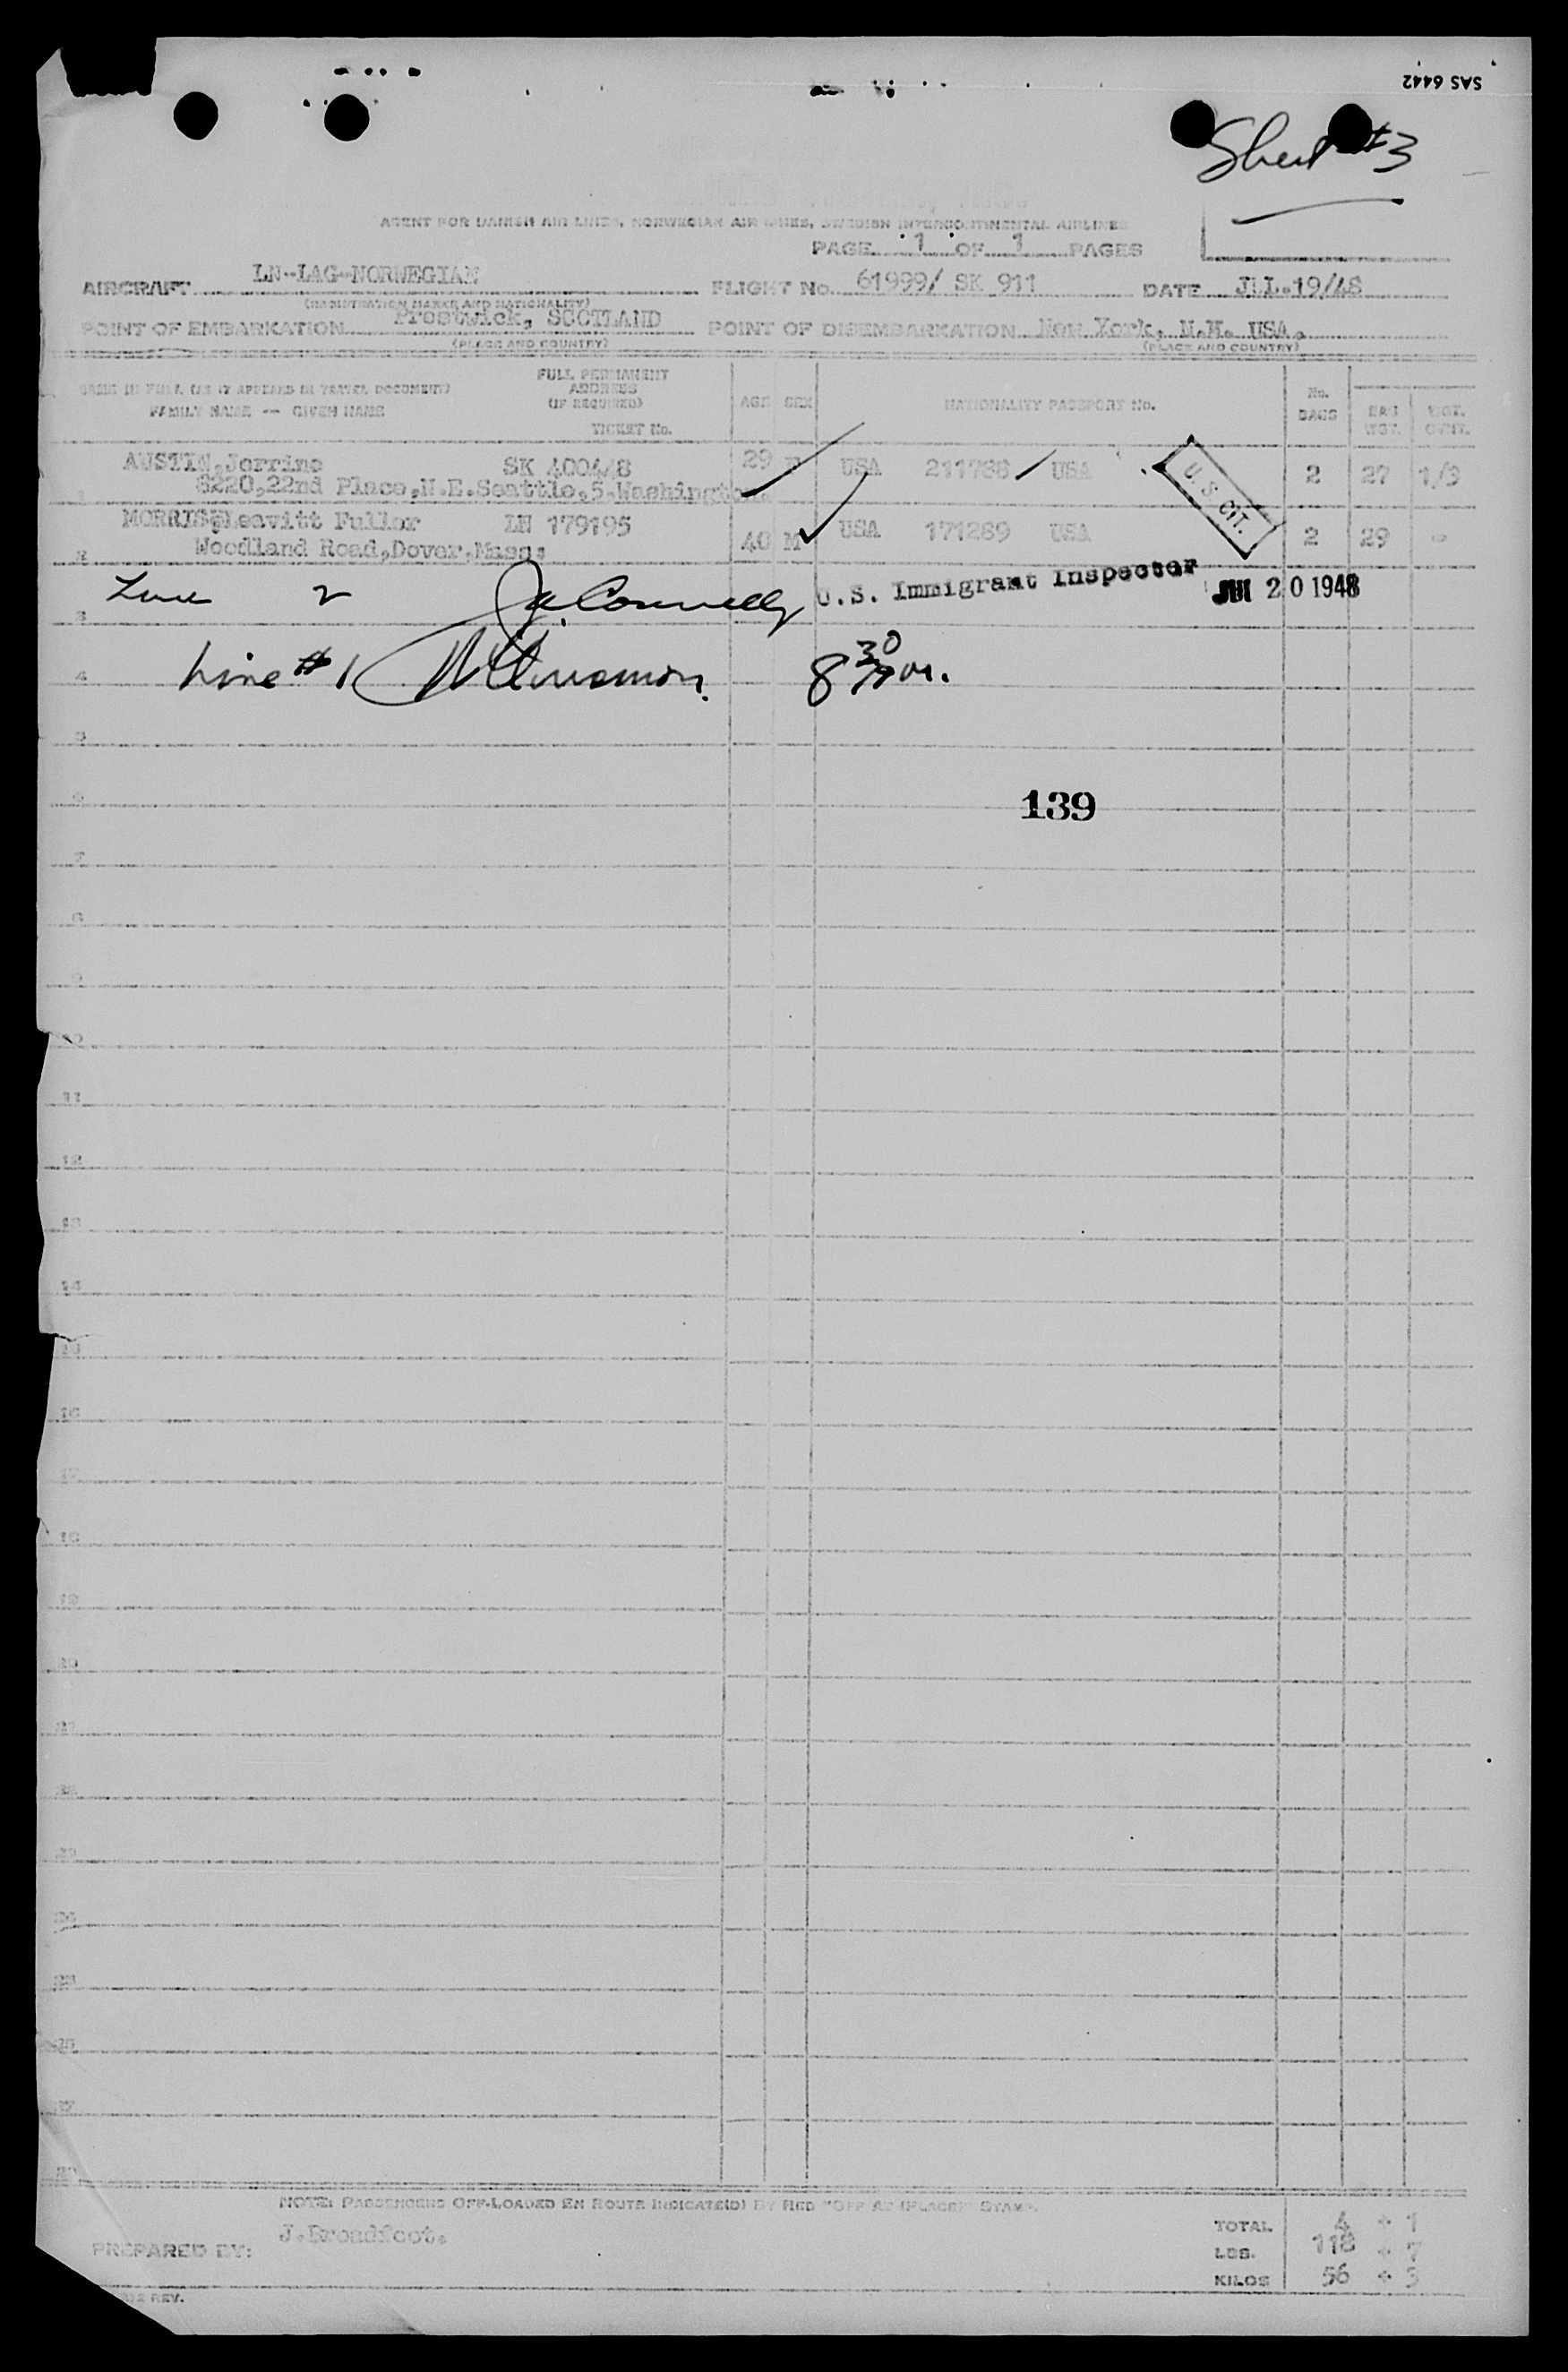 SAS 6442
Sheet #3
AGENT FOR DANISH AIR LINES, NORWEGIAN AIR LINES, SWEDISH INTERCONTINENTAL AIRLINES
PAGE 1 OF 1 PAGES
AIRCRAFT LN-LAG-NORWEGIAN FLIGHT No. 61999/ SK 911 DATE JUL.19/48
(REGISTRATION MARKS AND NATIONALITY)
POINT OF EMBARKATION Prestwick, SCOTLAND POINT OF DISEMBARKATION New York, N.Y. USA.
(PLACE AND COUNTRY) (PLACE AND COUNTRY)
NAME IN FULL (AS IT APPEARS IN TRAVEL DOCUMENT)
FAMILY NAME -- GIVEN NAME
FULL PERMANENT
ADDRESS
(IF REQUIRED)
TICKET No.
AGE SEX NATIONALITY PASSPORT No. No. BAGS BAG WGT.
AUSTIN,Jerrine SK 400448 29 F USA 211788 USA 2 27 1/3
8220,22nd Place,N.E.Seattle,5.Washington.
U. S. CIT.
MORRIS,Leavitt Fuller LH 179195 40 M USA 171289 USA 2 29
2 Woodland Road,Dover,Mass:
Line 2 J.A. Connelly U.S. Immigrant Inspector JUL 20 1948
3
4 Line #1 8 30
5
6 139
7
8
9
10
11
12
13
14
15
16
17
18
19
20
21
22
23
24
25
26
27
28
NOTE: PASSENGERS OFF-LOADED EN ROUTE INDICATE(D) BY RED "OFF AT (PLACE)" STAMP.
PREPARED BY: J.Broadfoot.
TOTAL 4 + 1
LBS. 118 + 7
KILOS 56 + 3
REV.